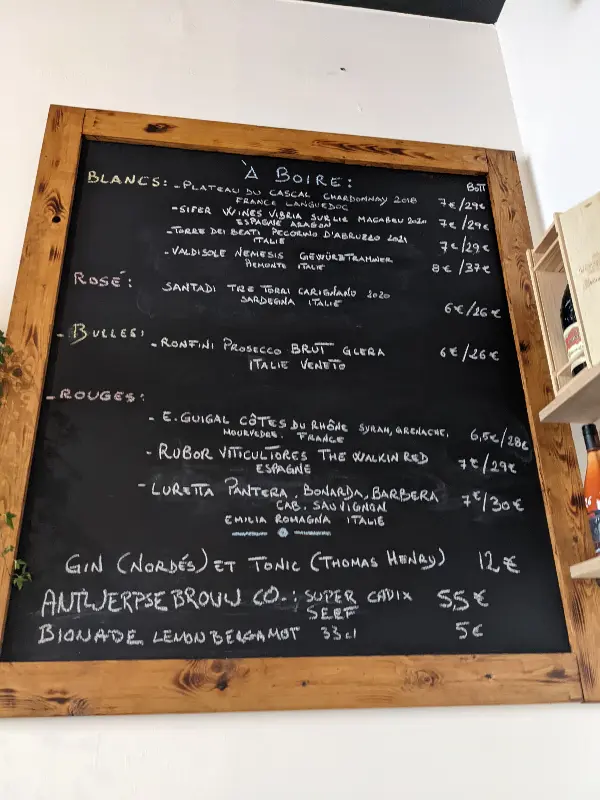 À BOIRE:
BOTT
BLANCS: - PLATEAU DU CASCAL CHARDONNAY 2018 7€/29€
FRANCE LANGUEDOC
- SIFER WINES VIBRIA SUR LIE MACABEU 2020 7€/29€
ESPAGNE ARAGON
- TORRE DEI BEATI PECORINO D'ABRUZZO 2021 7€/29€
ITALIE
- VALDISOLE NEMESIS GEWÜRZTRAMINER 8€/37€
PIEMONTE ITALIE
ROSÉ: SANTADI TRE TORRI CARIGNANO 2020 6€/26€
SARDEGNA ITALIE
- BULLES: - RONFINI PROSECCO BRUT GLERA 6€/26€
ITALIE VENETO
- ROUGES:
- E. GUIGAL CÔTES DU RHÔNE SYRAH, GRENACHE, 6,5€/28€
MOURVEDRE. FRANCE
- RUBOR VITICULTORES THE WALKIN RED 7€/29€
ESPAGNE
- LURETTA PANTERA. BONARDA, BARBERA 7€/30€
CAB. SAUVIGNON
EMILIA ROMAGNA ITALIE
GIN (NORDÉS) ET TONIC (THOMAS HENRY) 12€
ANTWERPSE BROUW CO.: SUPER CADIX 5,5€
SEEF
BIONADE LEMON BERGAMOT 33cl 5€